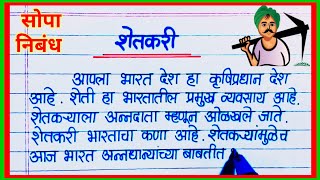 सोपा
निबंध
शेतकरी
आपला भारत देश हा कृषिप्रधान देश
आहे. शेती हा भारतातील प्रमुख व्यवसाय आहे.
शेतकऱ्याला अन्नदाता म्हणून ओळखले जाते.
शेतकरी भारताचा कणा आहे. शेतकऱ्यांमुळेच
आज भारत अन्नधान्यांच्या बाबतीत